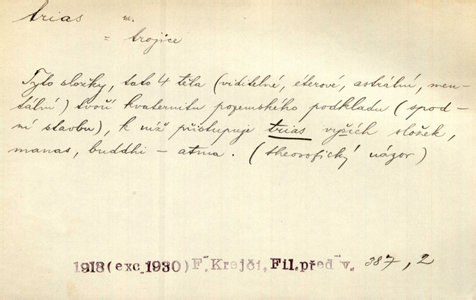 trias m.
= trojice
Tyto složky, tato 4 těla (viditelné, éterové, astrální, men-
tální) tvoří kvaternitu pozemského podkladu (spod-
ní stavbu), k níž přistupuje trias vyších složek,
manas, buddhi – atma. (theosofický názor)
1918 (exc. 1930) F. Krejčí, Fil. před v. 387, 2